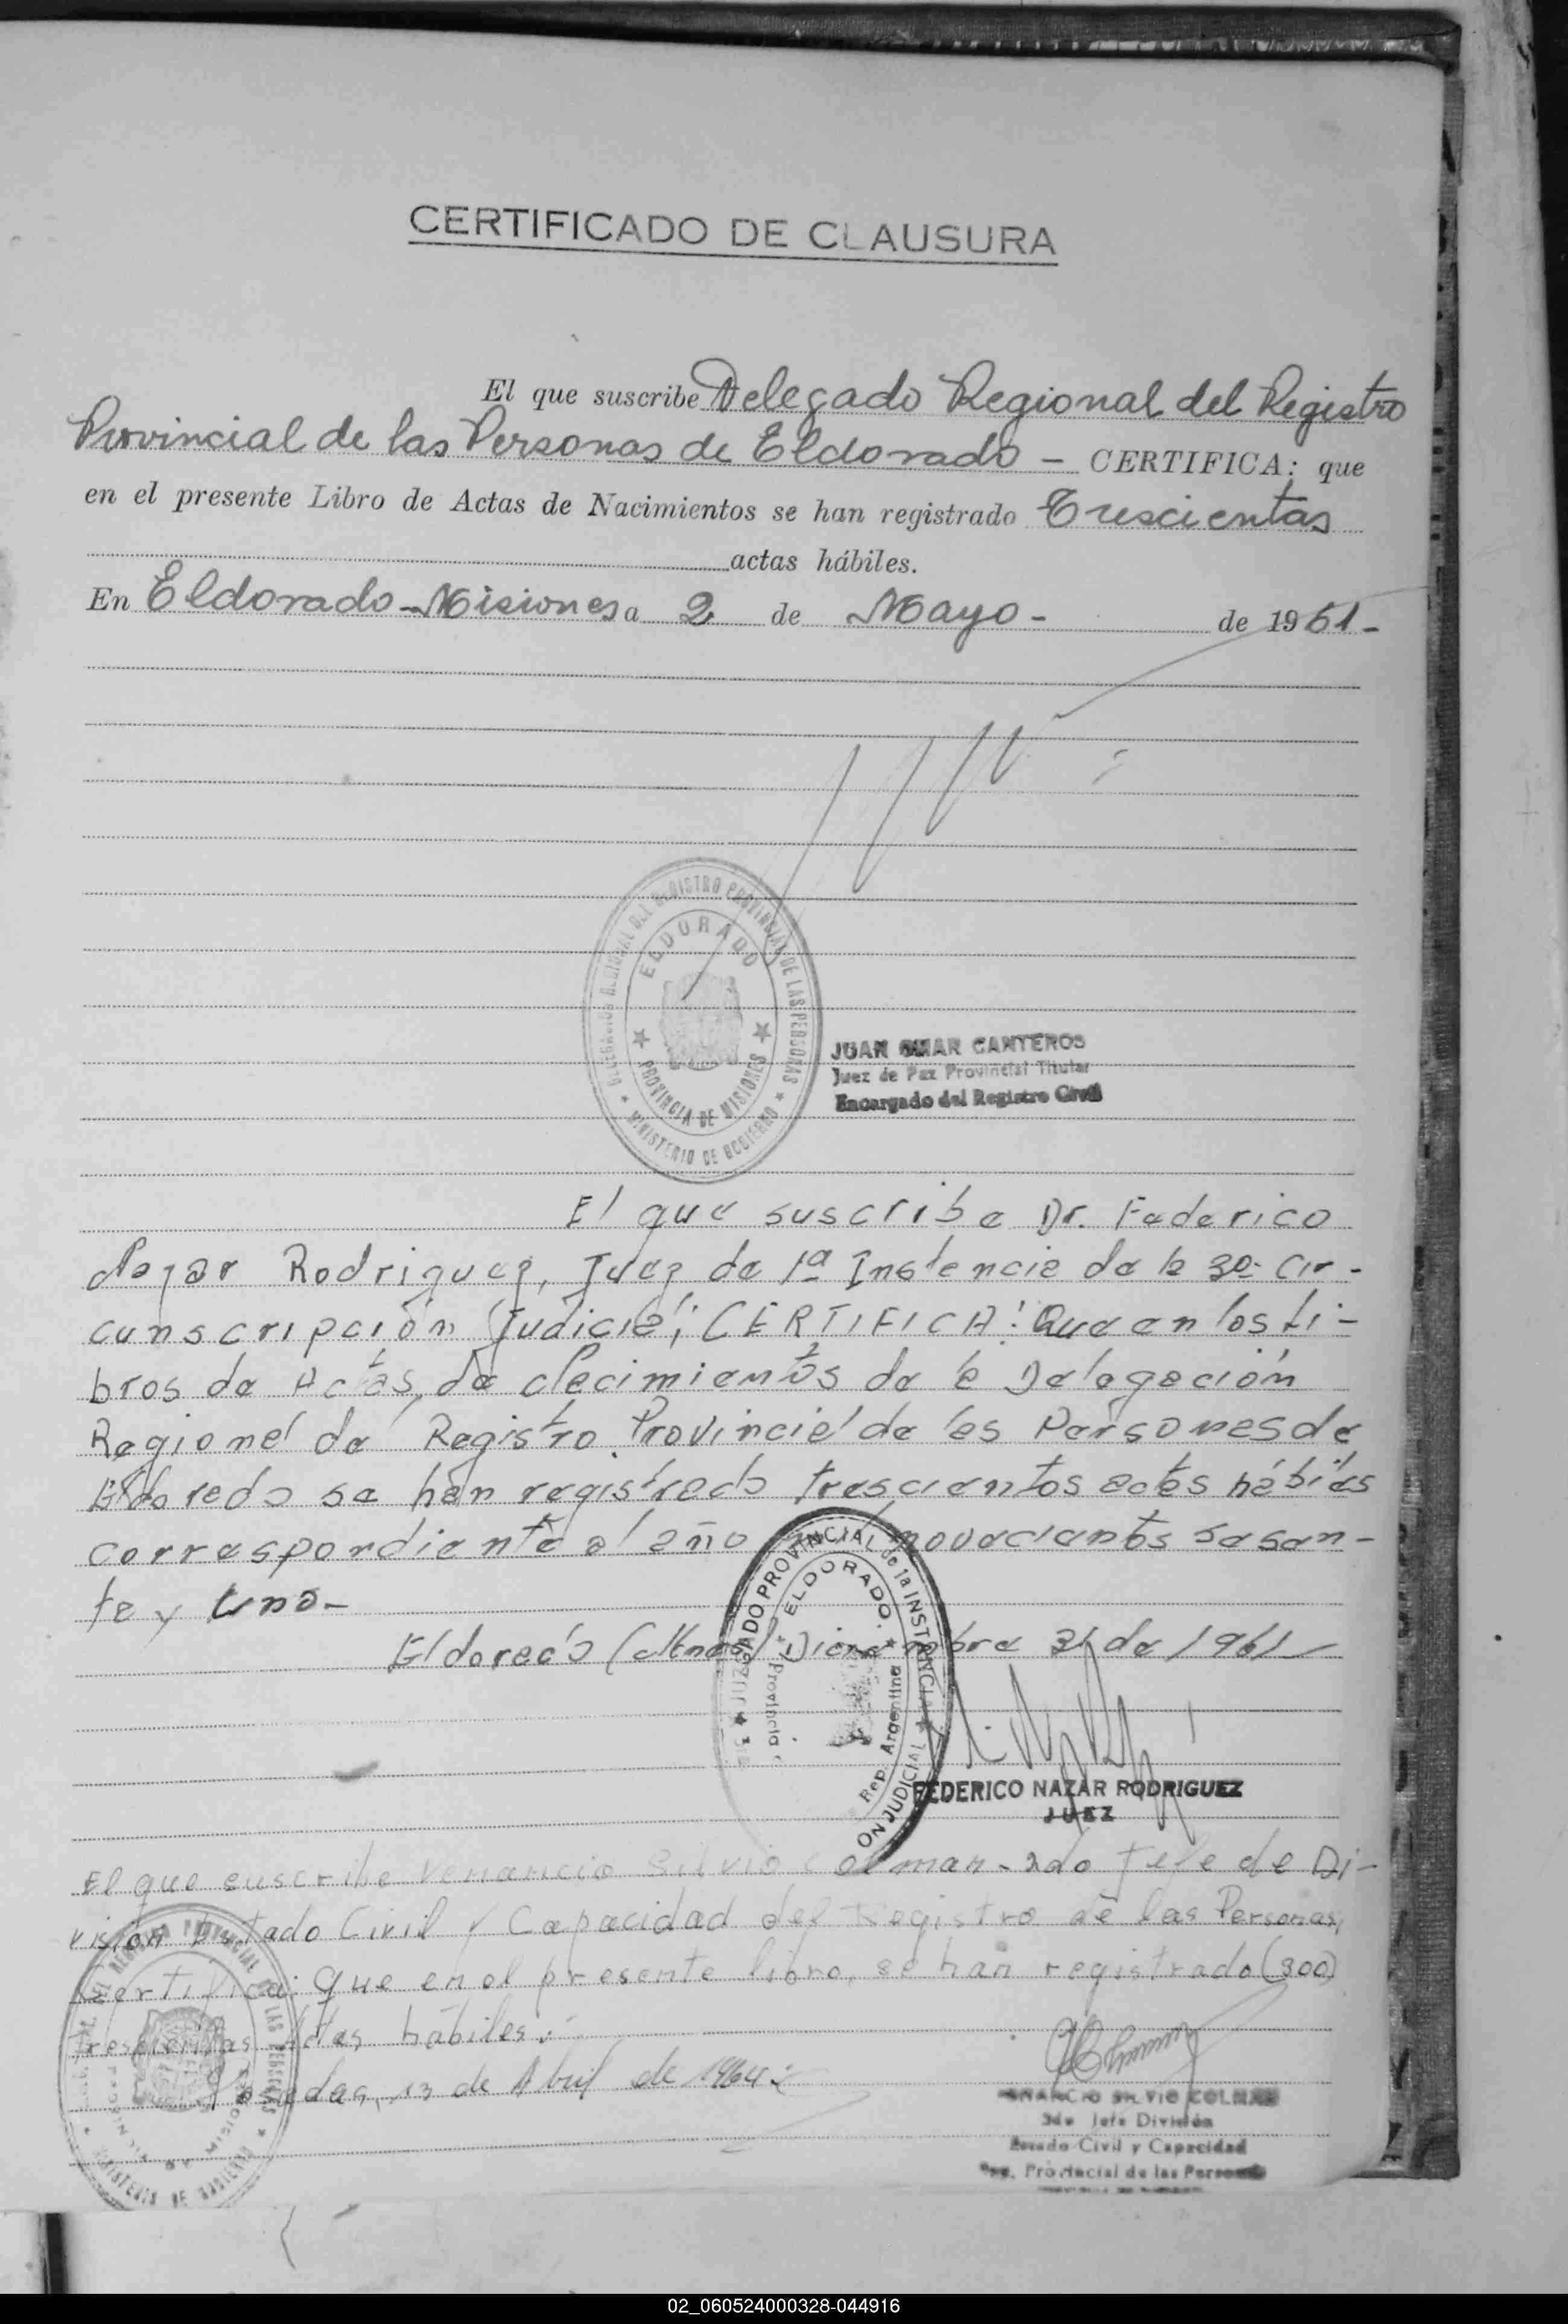 CERTIFICADO DE CLAUSURA
El que suscribe Delegado Regional del Registro
Provincial de las Personas de Eldorado - CERTIFICA: que
en el presente Libro de Actas de Nacimientos se han registrado Trescientas
actas hábiles.
En Eldorado - Misiones a 2 de Mayo - de 1961 -
DELEGACION REGIONAL DEL REGISTRO PROVINCIAL DE LAS PERSONAS
ELDORADO
PROVINCIA DE MISIONES
MINISTERIO DE GOBIERNO
JUAN OMAR CANTEROS
Juez de Paz Provincial Titular
Encargado del Registro Civil
El que suscribe Dr. Federico
Nazar Rodriguez, Juez de 1ª Instancia de la 3ª Cir-
cunscripción Judicial; CERTIFICA: Que en los Li-
bros de Actas, de Nacimientos de la Delegación
Regional de Registro Provincial de las Personas de
Eldorado se han registrado trescientos actas hábiles
correspondiente al año novecientos sesen-
ta y uno-
Eldorado (Mnes) Diciembre 31 de 1961
JUZGADO PROVINCIAL de 1a INSTANCIA
ELDORADO
Provincia
Rep. Argentina
ON JUDICIAL
FEDERICO NAZAR RODRIGUEZ
JUEZ
El que suscribe Venancio Silvio Colman - 2do Jefe de Di-
visión Estado Civil y Capacidad del Registro de las Personas,
Certifica: que en el presente libro, se han registrado (300)
trescientas Actas hábiles.
Posadas, 13 de Abril de 1964
REGISTRO PROVINCIAL DE LAS PERSONAS
MINISTERIO DE GOBIERNO
VENANCIO SILVIO COLMAN
2do Jefe División
Estado Civil y Capacidad
Reg. Provincial de las Personas
02_060524000328-044916